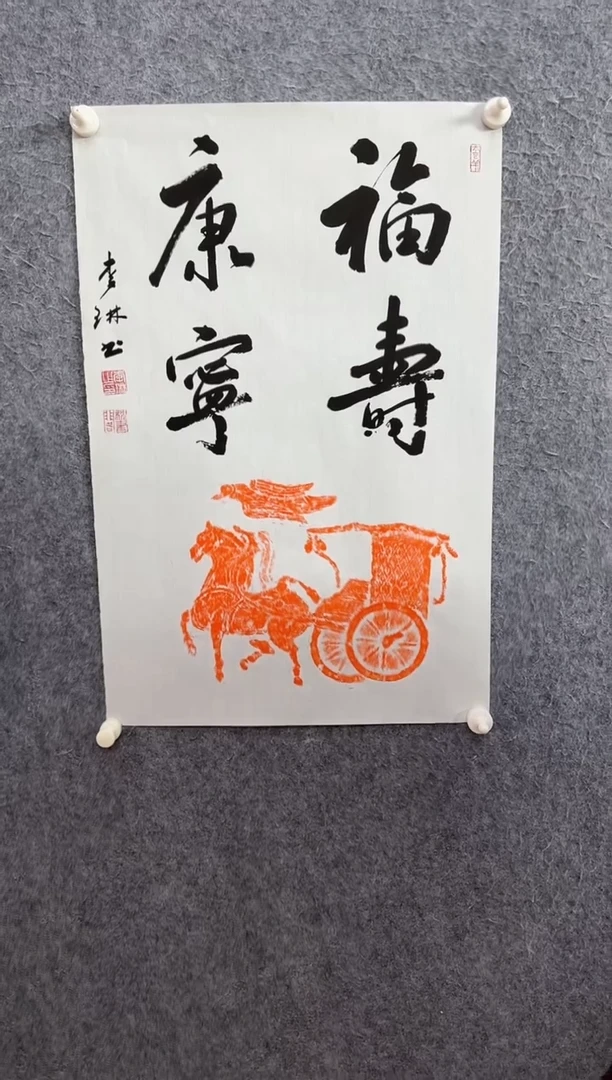 福壽
康寧
李琳书